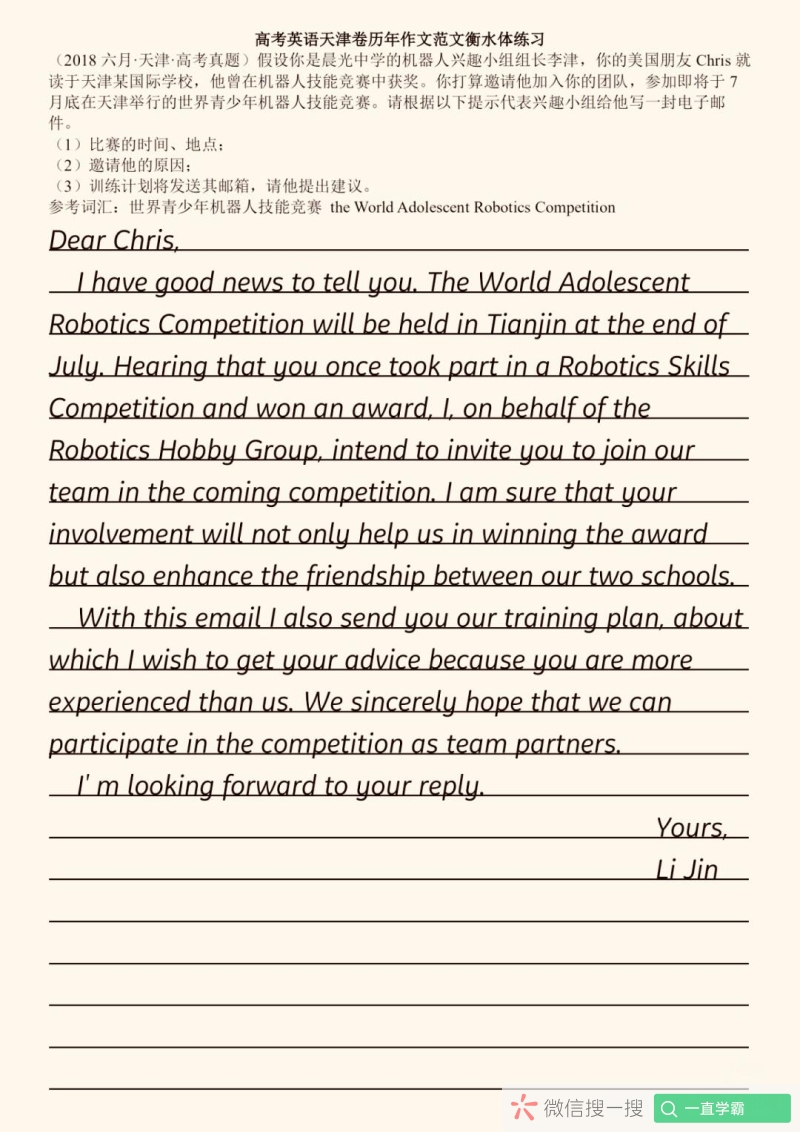 高考英语天津卷历年作文范文衡水体练习
（2018 六月·天津·高考真题）假设你是晨光中学的机器人兴趣小组组长李津，你的美国朋友 Chris 就
读于天津某国际学校，他曾在机器人技能竞赛中获奖。你打算邀请他加入你的团队，参加即将于 7
月底在天津举行的世界青少年机器人技能竞赛。请根据以下提示代表兴趣小组给他写一封电子邮
件。
（1）比赛的时间、地点；
（2）邀请他的原因；
（3）训练计划将发送其邮箱，请他提出建议。
参考词汇：世界青少年机器人技能竞赛 the World Adolescent Robotics Competition
Dear Chris,
I have good news to tell you. The World Adolescent
Robotics Competition will be held in Tianjin at the end of
July. Hearing that you once took part in a Robotics Skills
Competition and won an award, I, on behalf of the
Robotics Hobby Group, intend to invite you to join our
team in the coming competition. I am sure that your
involvement will not only help us in winning the award
but also enhance the friendship between our two schools.
With this email I also send you our training plan, about
which I wish to get your advice because you are more
experienced than us. We sincerely hope that we can
participate in the competition as team partners.
I' m looking forward to your reply.
Yours,
Li Jin
微信搜一搜 一直学霸